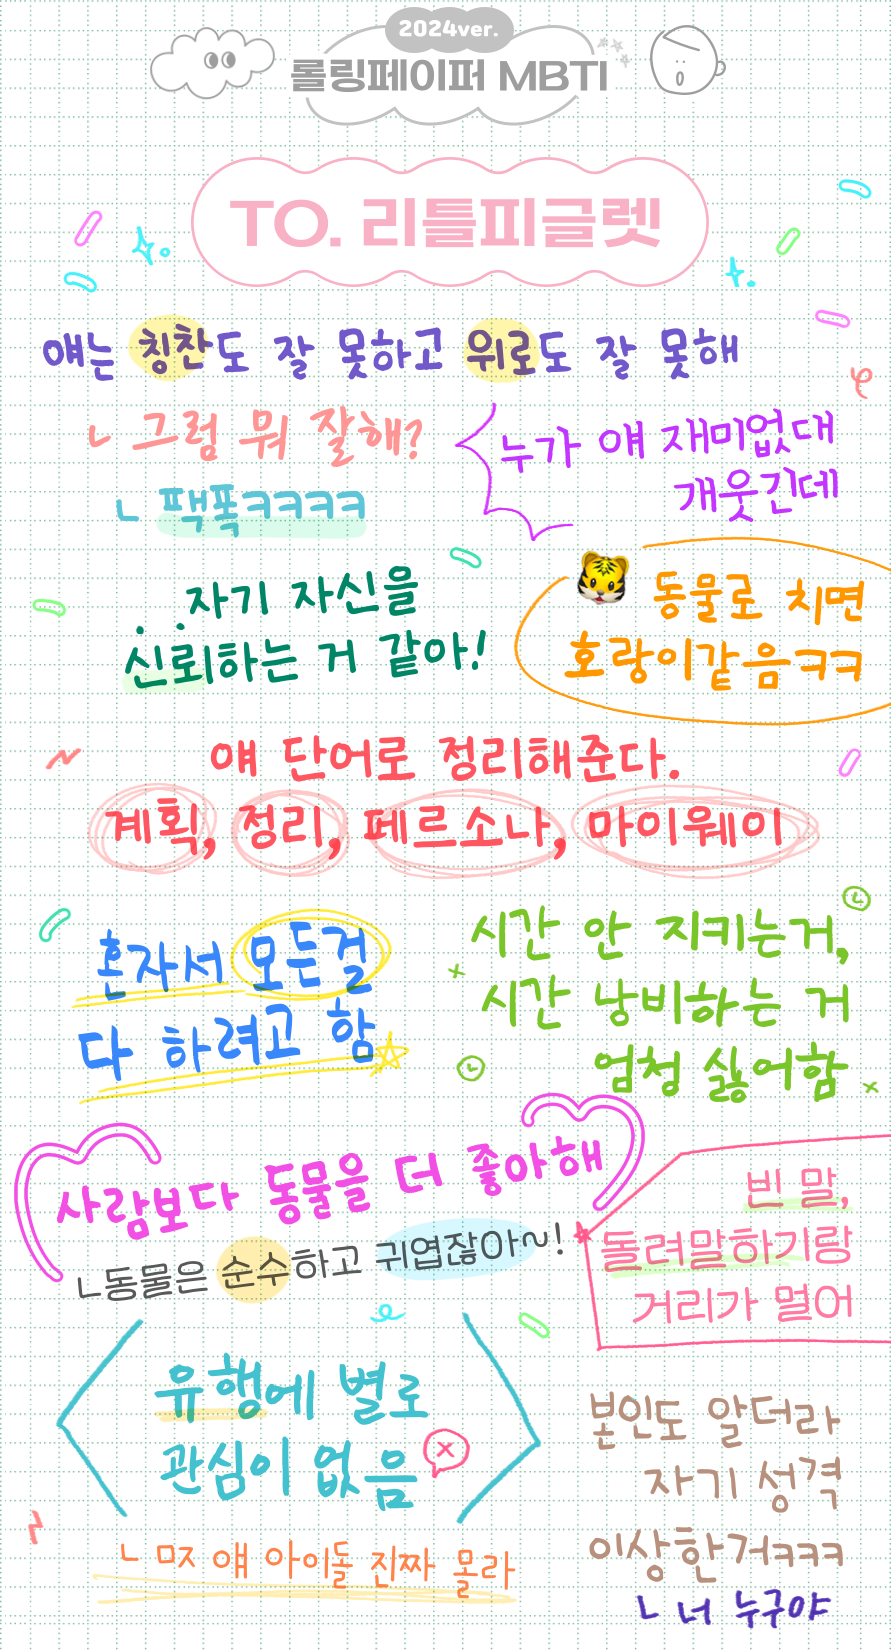 2024ver.
롤링페이퍼 MBTI
TO. 리틀피글렛
얘는 칭찬도 잘 못하고 위로도 잘 못해
ㄴ 그럼 뭐 잘해?
ㄴ 팩폭ㅋㅋㅋㅋ
누가 얘 재미없대
개웃긴데
자기 자신을
신뢰하는 거 같아!
동물로 치면
호랑이같음ㅋㅋ
얘 단어로 정리해준다.
계획, 정리, 페르소나, 마이웨이
혼자서 모든걸
다 하려고 함
시간 안 지키는거,
시간 낭비하는 거
엄청 싫어함
사람보다 동물을 더 좋아해
ㄴ동물은 순수하고 귀엽잖아~!
빈 말,
돌려말하기랑
거리가 멀어
유행에 별로
관심이 없음
ㄴ ㅁㅈ 얘 아이돌 진짜 몰라
본인도 알더라
자기 성격
이상한거ㅋㅋㅋ
ㄴ 너 누구야